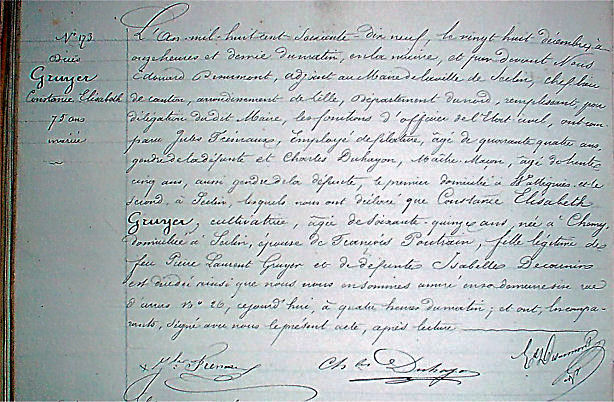 N° 173
Décès
Gruyer
Constance Elisabeth
75 ans
mariée
L'An mil huit cent soixante-dix neuf, le vingt huit décembre, à
onze heures et demie du matin, en la mairie, et par devant Nous
Edouard, adjoint au Maire de la ville de Seclin, chef lieu
de canton, arrondissement de Lille, Département du nord, remplissant par
délégation dudit Maire, les fonctions d'officier de l'Etat civil, ont com-
paru Jules, Employé de filature, âgé de quarante quatre ans,
gendre de la défunte et Charles Duhayon, Maître Maçon, âgé de trente
cinq ans, aussi gendre de la défunte, le premier domicilié à Wattignies et le
second, à Seclin, lesquels nous ont déclaré que Constance Elisabeth
Gruyer, cultivatrice, âgée de soixante-quinze ans née à Chemy,
domiciliée à Seclin, épouse de François Poutrain, fille légitime de
feu Pierre Laurent Gruyer et de défunte Isabelle
est décédée ainsi que nous nous en sommes assuré en sa demeure sise rue
d'arras N° 26, cejourd'hui, à quatre heures du matin; et ont, les compa-
rants, signé avec nous le présent acte, après lecture
Ch les Duhayon